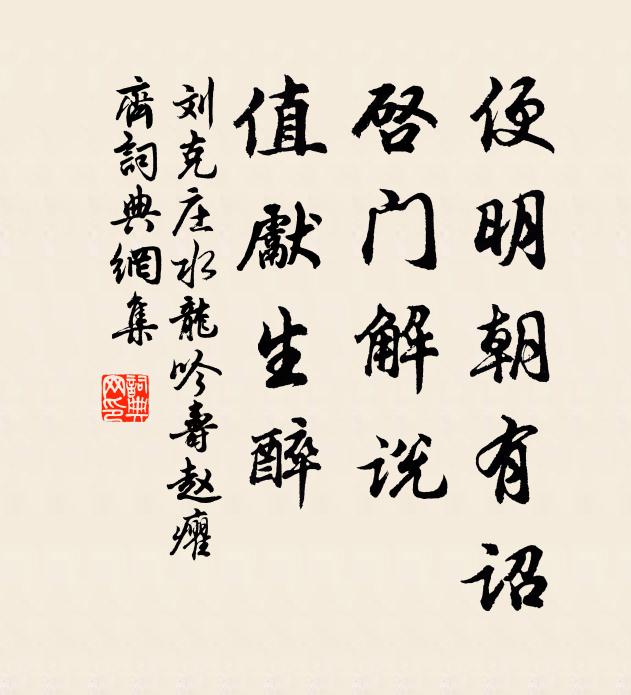 便明朝有詔
啓门解说
值獻生醉
刘克庄水龍吟壽赵癯
齋詞典網集
詞典网印